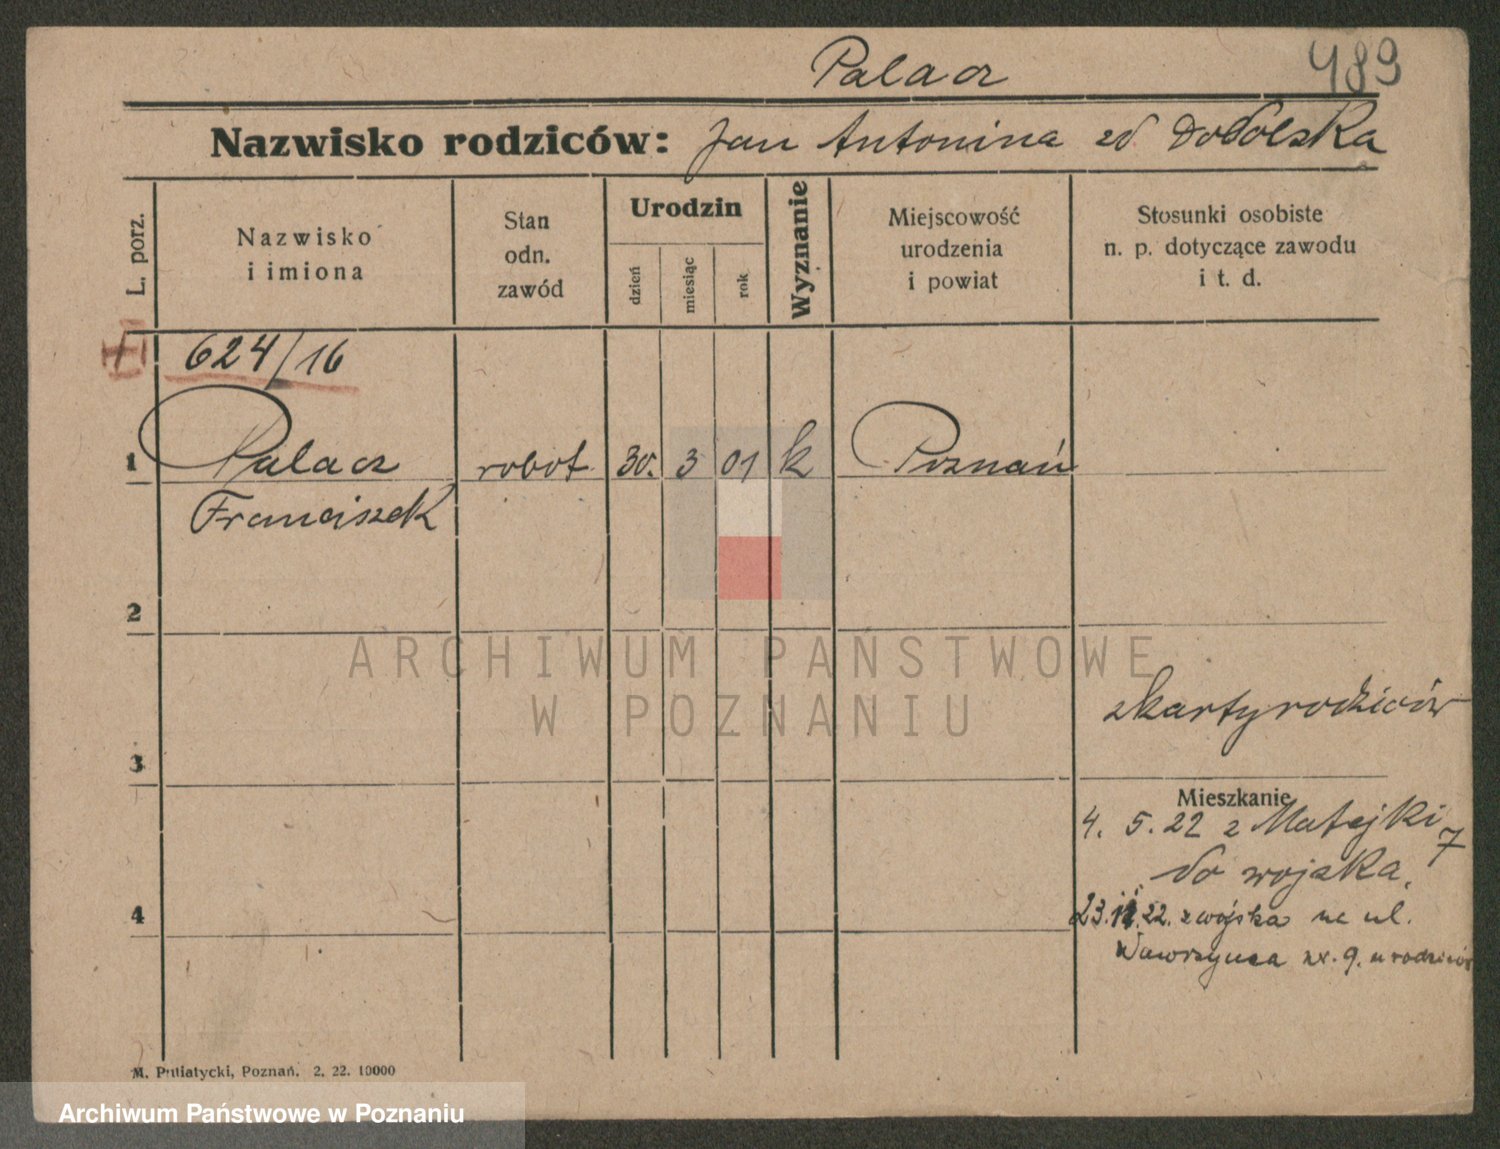 Palacz
489
Nazwisko rodziców: Jan Antonina zd Dobolska
L. porz.
Nazwisko i imiona
Stan odn. zawód
Urodzin
dzień
miesiąc
rok
Wyznanie
Miejscowość urodzenia i powiat
Stosunki osobiste n. p. dotyczące zawodu i t. d.
624/16
1 Palacz robot. 30. 3 01 k Poznań
Franciszek
2
ARCHIWUM PAŃSTWOWE
W POZNANIU
z karty rodziców
3
Mieszkanie
4. 5. 22 z Matejki 7
do wojska.
4
23. 22. z wojska na ul.
Wawrzyńca nr. 9. u rodziców
M. Putiatycki, Poznań. 2. 22. 10000
Archiwum Państwowe w Poznaniu